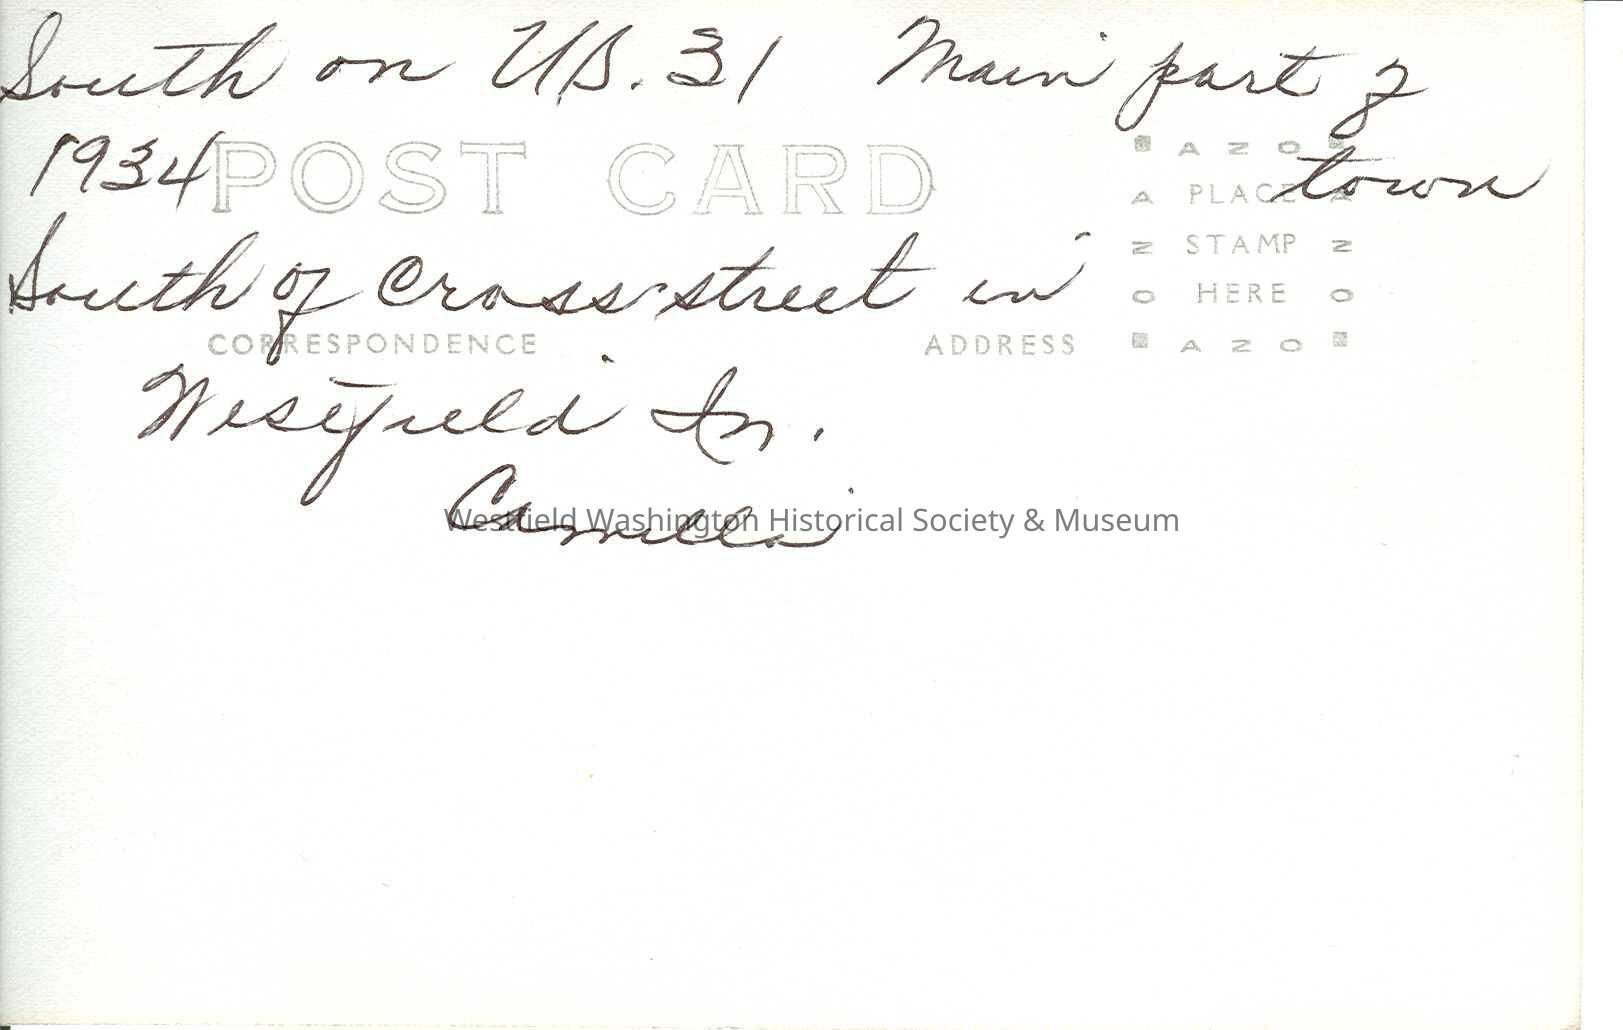 South on U.S. 31 Main part of
1934 town
POST CARD
South of Cross-street in
CORRESPONDENCE ADDRESS
Westfield In.
Camilla
AZO
PLACE
STAMP
HERE
AZO
Westfield Washington Historical Society & Museum